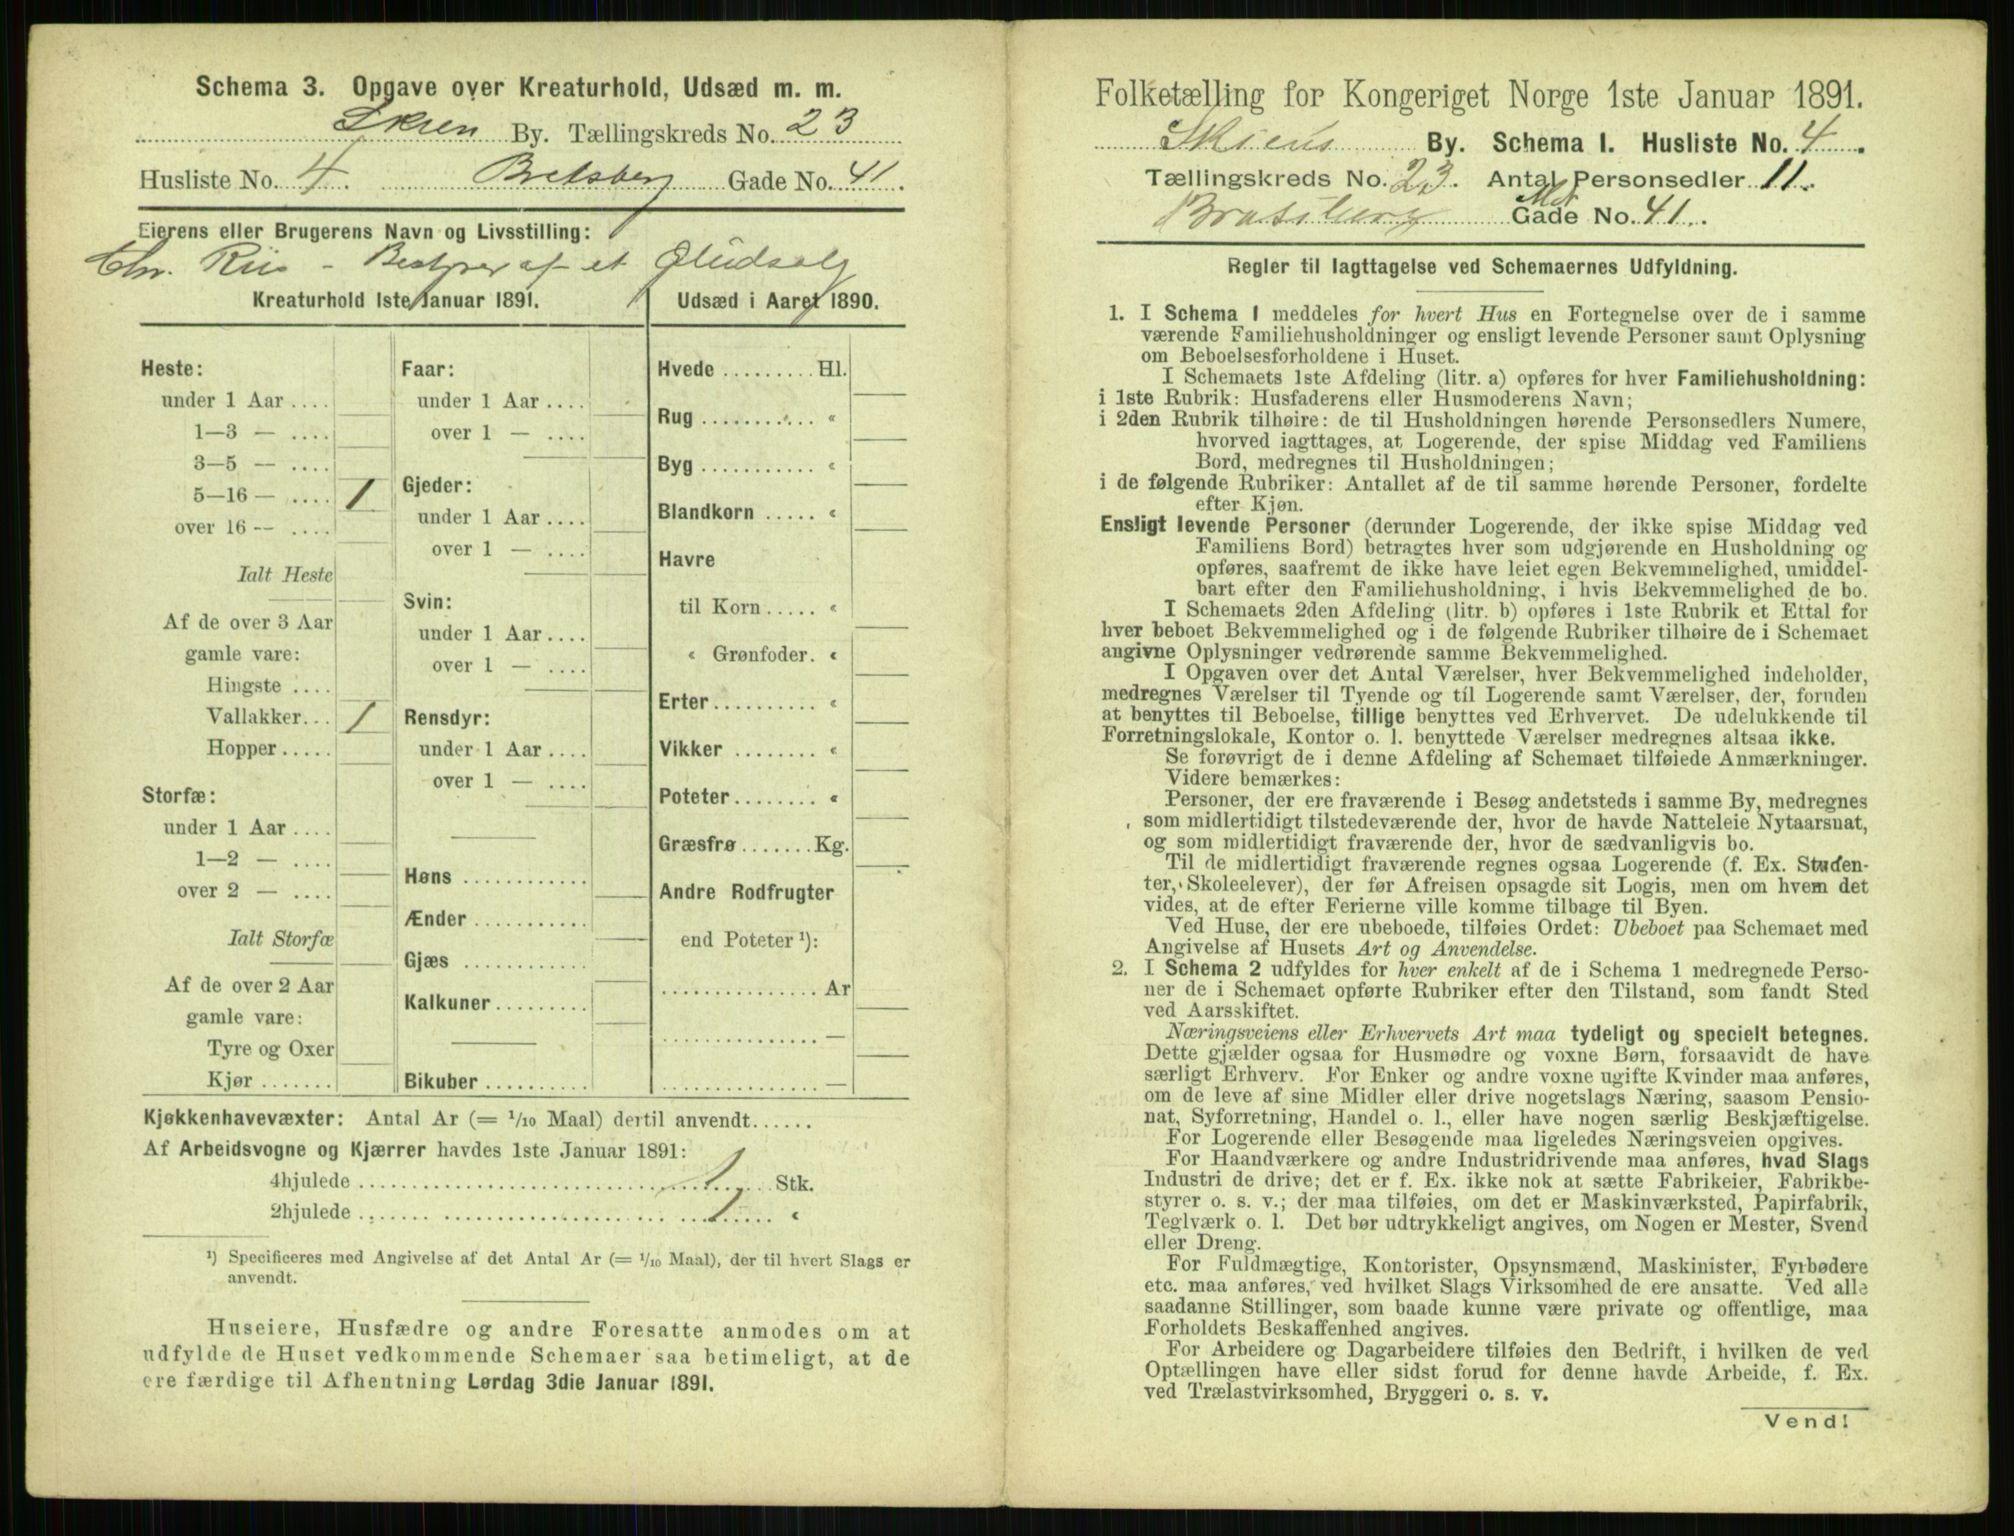 Schema 3. Opgave over Kreaturhold, Udsæd m. m.
Skien By. Tællingskreds No. 23
Husliste No. 4. Bratsberg Gade No. 41.
Eierens eller Brugerens Navn og Livsstilling:
Chr. Riis - Bestyrer af et Øludsalg
Kreaturhold 1ste Januar 1891.
Udsæd i Aaret 1890.
Heste:
under 1 Aar ....
1—3 — ....
3—5 — ....
5—16 — .... 1
over 16 — ....
Ialt Heste
Af de over 3 Aar
gamle vare:
Hingste ....
Vallakker... 1
Hopper .....
Storfæ:
under 1 Aar ....
1—2 — ....
over 2 — ....
Ialt Storfæ
Af de over 2 Aar
gamle vare:
Tyre og Oxer
Kjør .......
Faar:
under 1 Aar ....
over 1 — ....
Gjeder:
under 1 Aar ....
over 1 — ....
Svin:
under 1 Aar ....
over 1 — ....
Rensdyr:
under 1 Aar ....
over 1 — ....
Høns ............
Ænder ...........
Gjæs ............
Kalkuner.........
Bikuber ..........
Hvede ......... Hl.
Rug ........... «
Byg ........... «
Blandkorn ..... «
Havre
til Korn ..... «
« Grønfoder. «
Erter.......... «
Vikker ........ «
Poteter........ «
Græsfrø ....... Kg.
Andre Rodfrugter
end Poteter ¹):
............... Ar
............... —
............... —
Kjøkkenhavevæxter: Antal Ar (= 1/10 Maal) dertil anvendt......
Af Arbeidsvogne og Kjærrer havdes 1ste Januar 1891:
4hjulede .............. 1 ... Stk.
2hjulede .............. 1 ... «
¹) Specificeres med Angivelse af det Antal Ar (= 1/10 Maal), der til hvert Slags er
anvendt.
Huseiere, Husfædre og andre Foresatte anmodes om at
udfylde de Huset vedkommende Schemaer saa betimeligt, at de
ere færdige til Afhentning Lørdag 3die Januar 1891.
Folketælling for Kongeriget Norge 1ste Januar 1891.
Skiens By. Schema I. Husliste No. 4.
Tællingskreds No. 23. Antal Personsedler 11.
Bratsberg Gade No. 41.
Regler til Iagttagelse ved Schemaernes Udfyldning.
1. I Schema 1 meddeles for hvert Hus en Fortegnelse over de i samme
værende Familiehusholdninger og ensligt levende Personer samt Oplysning
om Beboelsesforholdene i Huset.
I Schemaets 1ste Afdeling (litr. a) opføres for hver Familiehusholdning:
i 1ste Rubrik: Husfaderens eller Husmoderens Navn;
i 2den Rubrik tilhøire: de til Husholdningen hørende Personsedlers Numere,
hvorved iagttages, at Logerende, der spise Middag ved Familiens
Bord, medregnes til Husholdningen;
i de følgende Rubriker: Antallet af de til samme hørende Personer, fordelte
efter Kjøn.
Ensligt levende Personer (derunder Logerende, der ikke spise Middag ved
Familiens Bord) betragtes hver som udgjørende en Husholdning og
opføres, saafremt de ikke have leiet egen Bekvemmelighed, umiddel-
bart efter den Familiehusholdning, i hvis Bekvemmelighed de bo.
I Schemaets 2den Afdeling (litr. b) opføres i 1ste Rubrik et Ettal for
hver beboet Bekvemmelighed og i de følgende Rubriker tilhøire de i Schemaet
angivne Oplysninger vedrørende samme Bekvemmelighed.
I Opgaven over det Antal Værelser, hver Bekvemmelighed indeholder,
medregnes Værelser til Tyende og til Logerende samt Værelser, der, foruden
at benyttes til Beboelse, tillige benyttes ved Erhvervet. De udelukkende til
Forretningslokale, Kontor o. l. benyttede Værelser medregnes altsaa ikke.
Se forøvrigt de i denne Afdeling af Schemaet tilføiede Anmærkninger.
Videre bemærkes:
Personer, der ere fraværende i Besøg andetsteds i samme By, medregnes
som midlertidigt tilstedeværende der, hvor de havde Natteleie Nytaarsnat,
og som midlertidigt fraværende der, hvor de sædvanligvis bo.
Til de midlertidigt fraværende regnes ogsaa Logerende (f. Ex. Studen-
ter, Skoleelever), der før Afreisen opsagde sit Logis, men om hvem det
vides, at de efter Ferierne ville komme tilbage til Byen.
Ved Huse, der ere ubeboede, tilføies Ordet: Ubeboet paa Schemaet med
Angivelse af Husets Art og Anvendelse.
2. I Schema 2 udfyldes for hver enkelt af de i Schema 1 medregnede Perso-
ner de i Schemaet opførte Rubriker efter den Tilstand, som fandt Sted
ved Aarsskiftet.
Næringsveiens eller Erhvervets Art maa tydeligt og specielt betegnes.
Dette gjælder ogsaa for Husmødre og voxne Børn, forsaavidt de have
særligt Erhverv. For Enker og andre voxne ugifte Kvinder maa anføres,
om de leve af sine Midler eller drive nogetslags Næring, saasom Pensio-
nat, Syforretning, Handel o. l., eller have nogen særlig Beskjæftigelse.
For Logerende eller Besøgende maa ligeledes Næringsveien opgives.
For Haandværkere og andre Industridrivende maa anføres, hvad Slags
Industri de drive; det er f. Ex. ikke nok at sætte Fabrikeier, Fabrikbe-
styrer o. s. v.; der maa tilføies, om det er Maskinværksted, Papirfabrik,
Teglværk o. l. Det bør udtrykkeligt angives, om Nogen er Mester, Svend
eller Dreng.
For Fuldmægtige, Kontorister, Opsynsmænd, Maskinister, Fyrbødere
etc. maa anføres, ved hvilket Slags Virksomhed de ere ansatte. Ved alle
saadanne Stillinger, som baade kunne være private og offentlige, maa
Forholdets Beskaffenhed angives.
For Arbeidere og Dagarbeidere tilføies den Bedrift, i hvilken de ved
Optællingen have eller sidst forud for denne havde Arbeide, f. Ex.
ved Trælastvirksomhed, Bryggeri o. s. v.
Vend!